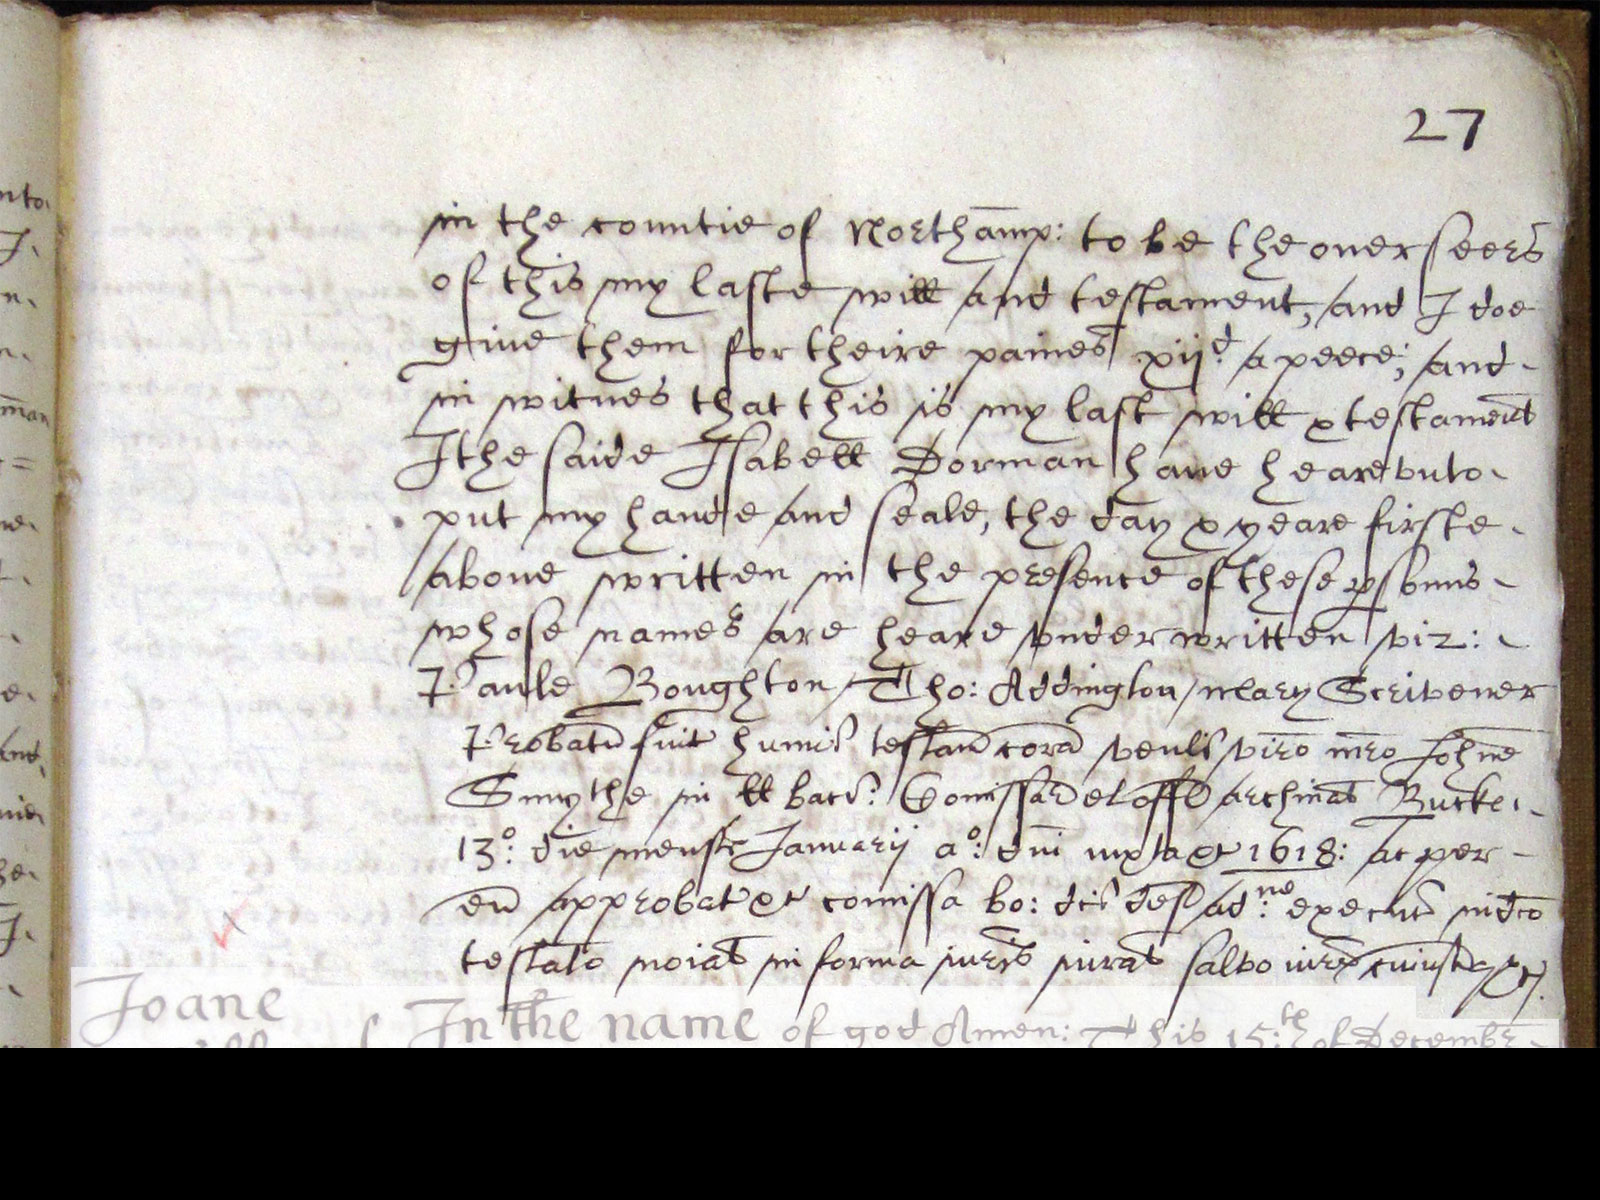 27
in the countie of Northamp: to be the overseers
of this my laste will and testament, and I doe
give them for theire paines xijd. a peece; and
in witnes that this is my last will & testament
I the saide Isabell Dorman have heare vnto
put my hande and seale, the day & yeare firste
above written in the presence of these psonns
whose names are heare vnder written viz:
Paule Boughton / Tho: Addington / Mary Scrivener
Probatu fuit humoi testam cora venli viro mro Johne
Smythe in ll bacr: Comissar et offle archinat Bucke
13o: die mensis Januarij ao: dni iuxta &c 1618: ac per
eu approbat &c comissa bo: dci def ad:ne execut in dco
testato noiat in forma iuris iurat salvo iure cuiuscq &c.
Joane
In the name of god Amen: This 15:th of Decembr